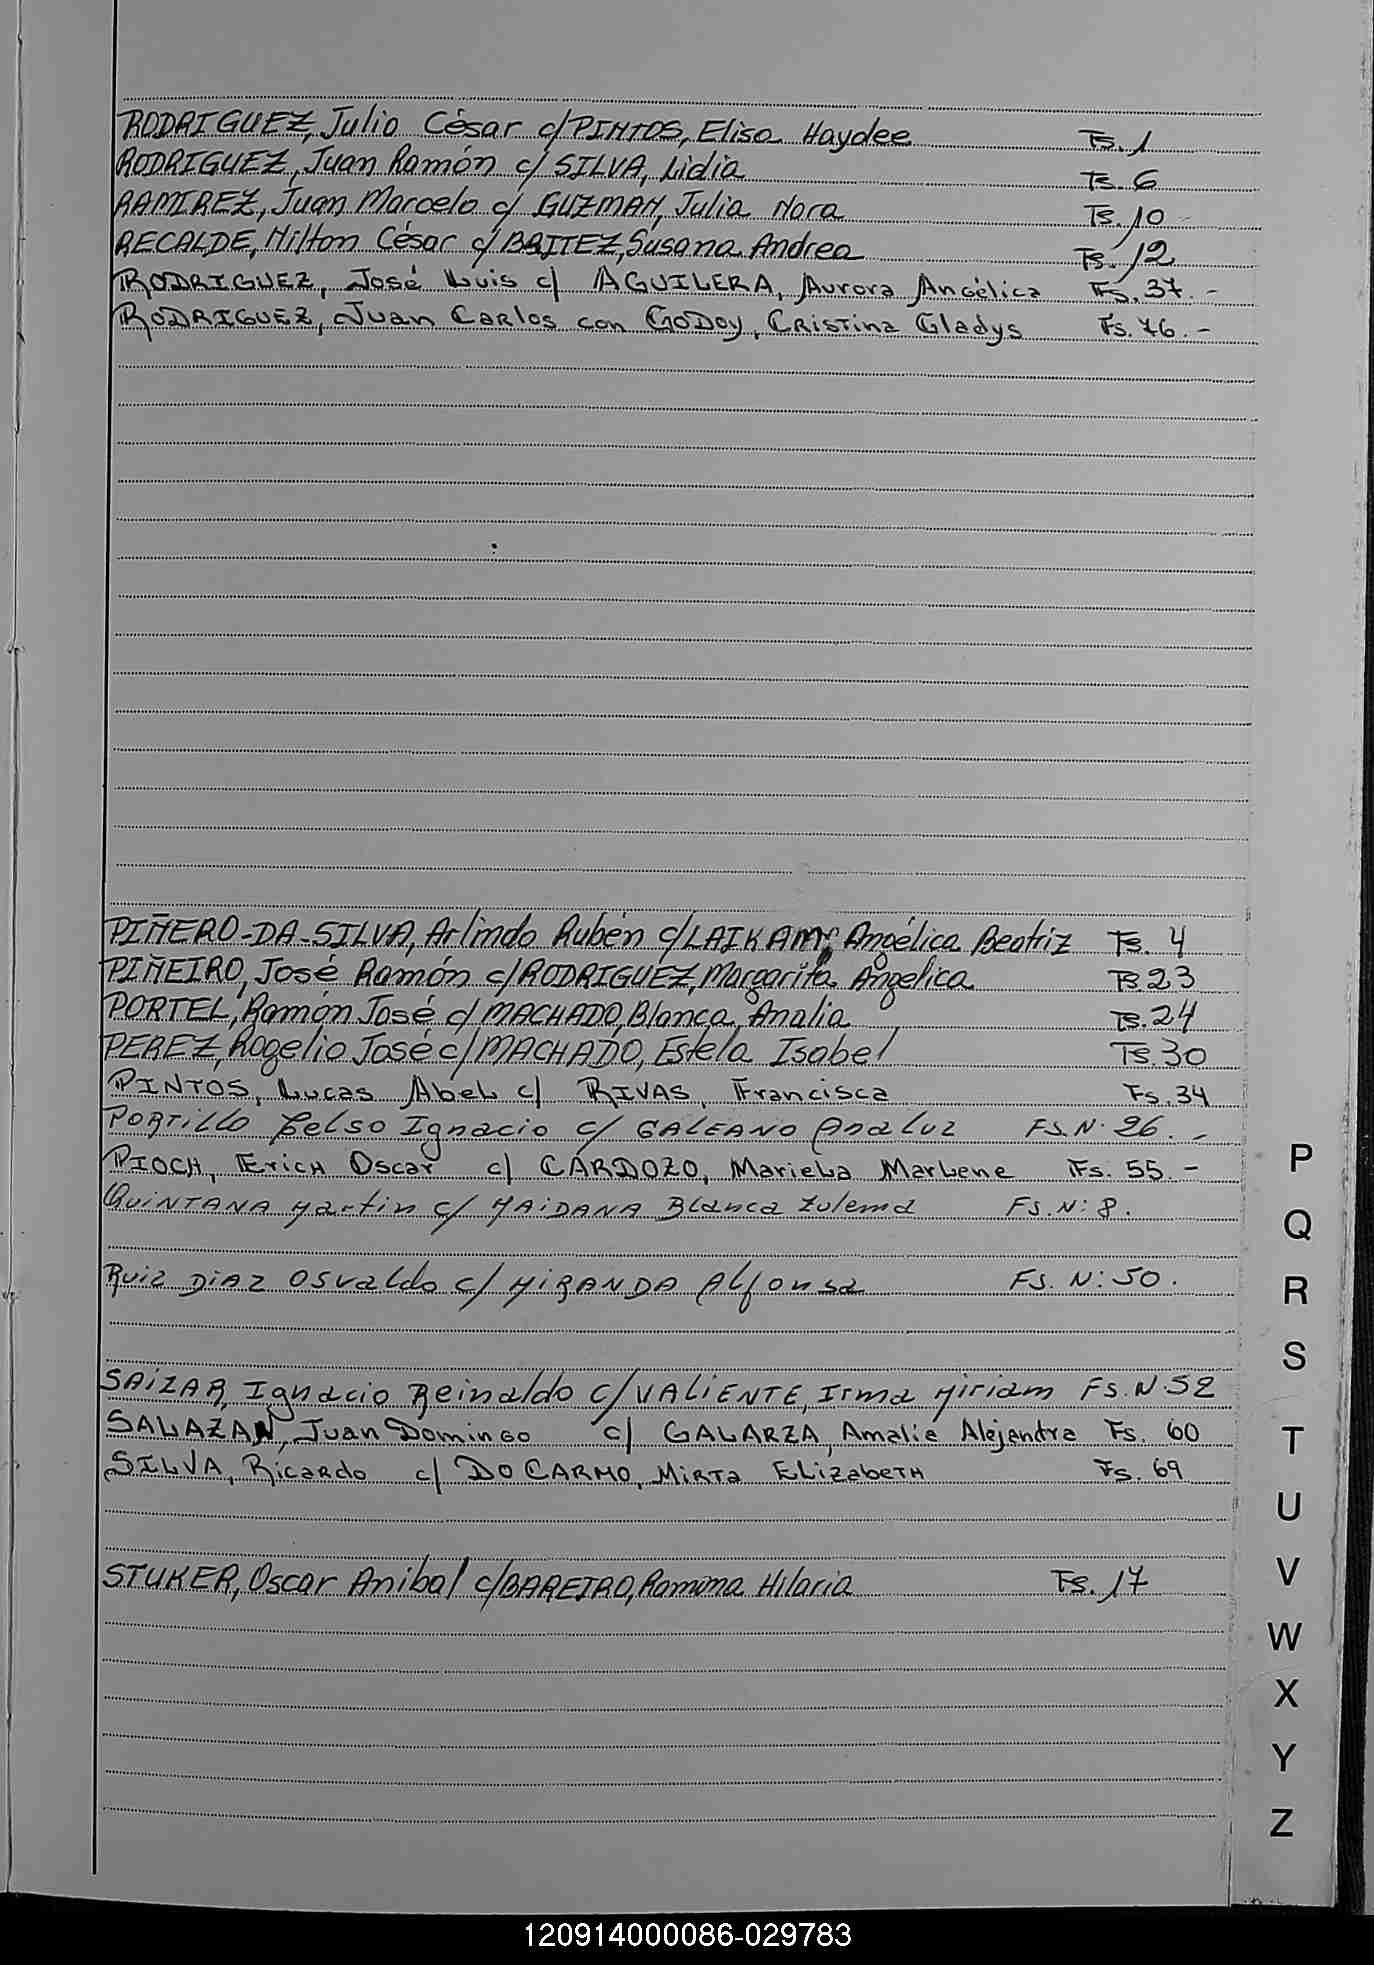 RODRIGUEZ, Julio César c/PINTOS, Elisa Haydee Fs. 1
RODRIGUEZ, Juan Ramón c/ SILVA, Lidia Fs. 6
RAMIREZ, Juan Marcelo c/ GUZMAN, Julia Nora Fs. 10 -
RECALDE, Milton César c/ BRITEZ, Susana Andrea Fs. 12
RODRIGUEZ, José Luis c/ AGUILERA, Aurora Angélica Fs. 37.-
RODRIGUEZ, Juan Carlos con GODOY, CRISTINA Gladys Fs. 76.-
PIÑERO-DA-SILVA, Arlindo Rubén c/LAIKAM, Angélica Beatriz Fs. 4
PIÑEIRO, José Ramón c/RODRIGUEZ, Margarita Angelica Fs. 23
PORTEL, Ramón José c/ MACHADO, Blanca Analia Fs. 24
PEREZ, Rogelio José c/ MACHADO, Estela Isabel Fs. 30
PINTOS, Lucas Abel c/ RIVAS, Francisca Fs. 34
PORTILLO Celso Ignacio c/ GALEANO Analuz FS. N. 26. -
PIOCH, Erich Oscar c/ CARDOZO, Mariela Marlene Fs. 55.-
QUINTANA Martin c/ MAIDANA Blanca Zulema FS. N: 8.
Ruiz DIAZ Osvaldo c/ MIRANDA Alfonsa FS. N: 50.
SAIZAR, Ignacio Reinaldo c/ VALIENTE, Irma Miriam FS. N. 52
SALAZAR, Juan Domingo c/ GALARZA, Amalia Alejandra Fs. 60
SILVA, Ricardo c/ DO CARMO, MIRTA ELIZABETH Fs. 69
STUKER, Oscar Anibal c/BAREIRO, Ramona Hilaria Fs. 17
P
Q
R
S
T
U
V
W
X
Y
Z
120914000086-029783